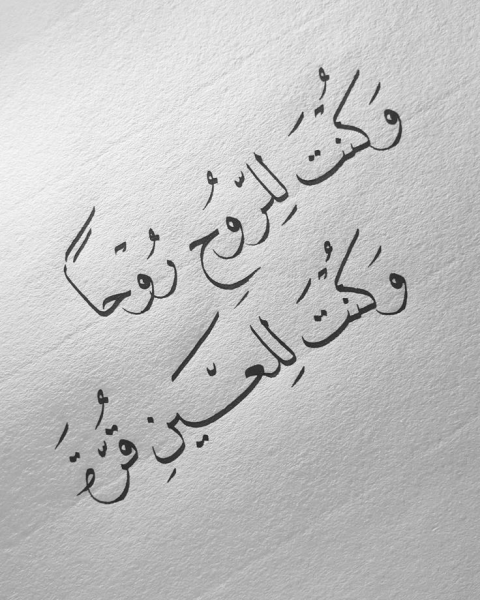 وَكُنْتَ لِلرُّوحِ رُوْحاً
وَكُنْتَ لِلعَيْنِ قُرَّةَ